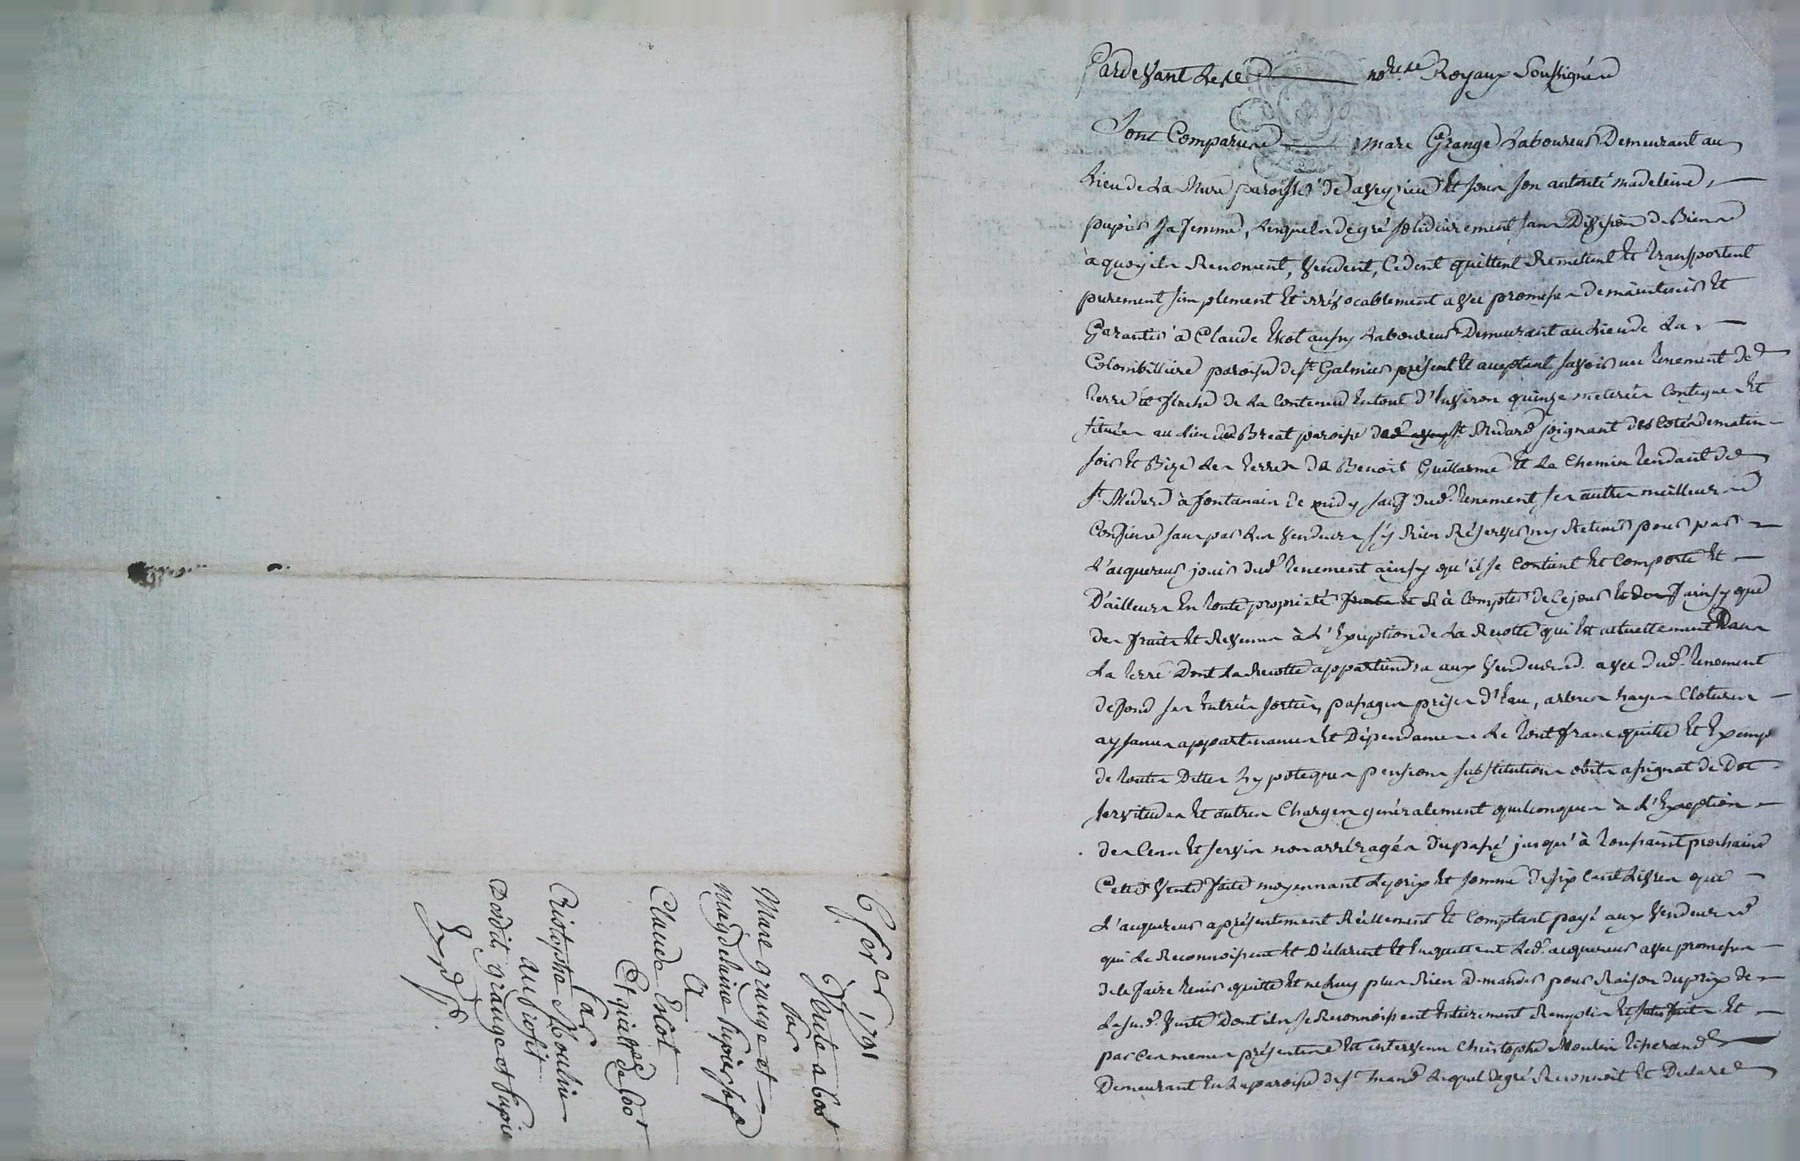 Pardevant les no.res Royaux Soussignés
Sont Comparus Marc Grange Laboureur Demeurant au
Lieu de La Mure paroisse de aveyzieu Et sous son autorité madeleine
pupier sa femme, Lesquels de gré solidairement sans Division de Biens
à quoy ils Renoncent, vendent, Cedent quittent Remettent Et transportent
purement simplement Et irrévocablement avec promesse de maintenir Et
Garantir à Claude Escot aussy Laboureur Demeurant au Lieu de La
Colombilliere paroisse de St Galmier présent Et acceptant savoir un tenement de
terre de La Contenue En tout d'Environ quinze meterées Contigues Et
situées au Lieu de Breat paroisse de St Medard joignant des Cotés de matin
soir Et Bize Les terres de Benoit Guillarme Et Le Chemin tendant de
St Medard à fontanain de midy sauf dud. tenement ses autres meilleurs
Confins sans par Les vendeurs s'y Rien Réserver ny Retenir pour par
L'acquereur jouir dud. tenement ainsy qu'il se Contient Et Comporte Et
D'ailleurs En toute propriété à Compter de Ce jour Et ainsy que
des fruits Et Revenus à L'Exeption de La Recolte qui Est actuellement Dans
La terre Dont La Recolte appartiendra aux vendeurs avec dud. tenement
de fond ses Entrées sorties, passages prises d'Eau, arbres hayes Clotures
aysances appartenances Et Dépendances Le tout franc quitte Et Exemp
de toutes Dettes hypoteques pensions substitutions obits assignat de Dot
servitudes Et autres Charges généralement quelconques à L'Exeption
des Cens Et servis non arréragés du passé jusqu'à toussaint prochaine
Cette vente faite moyennant Le prix Et somme de six Cent Livres que
L'acquereur a présentement Réellement Et Comptant payé aux vendeurs
qui Le Reconnoissent Et Déclarent Et En quittent Led. acquereur avec promesse
de le faire tenir quitte Et ne Luy plus Rien Demander pour Raison du prix de
La sud. vente Dont ils se Reconnoissent Entierement Remplis Et satisfaits Et
par Ces memes présentes Est intervenu Christophe Moulin tisserand
Demeurant En La paroisse de St Lequel de gré Reconnoit Et Declare
6 fer 1791
Vente a 600#
par
Marc grange et
Magdelaine pupier sa fe
A
Claude Escot
Et quittce de 600#
par
Cristophe Moulin
au profit
Desdit grange et pupier
Expd